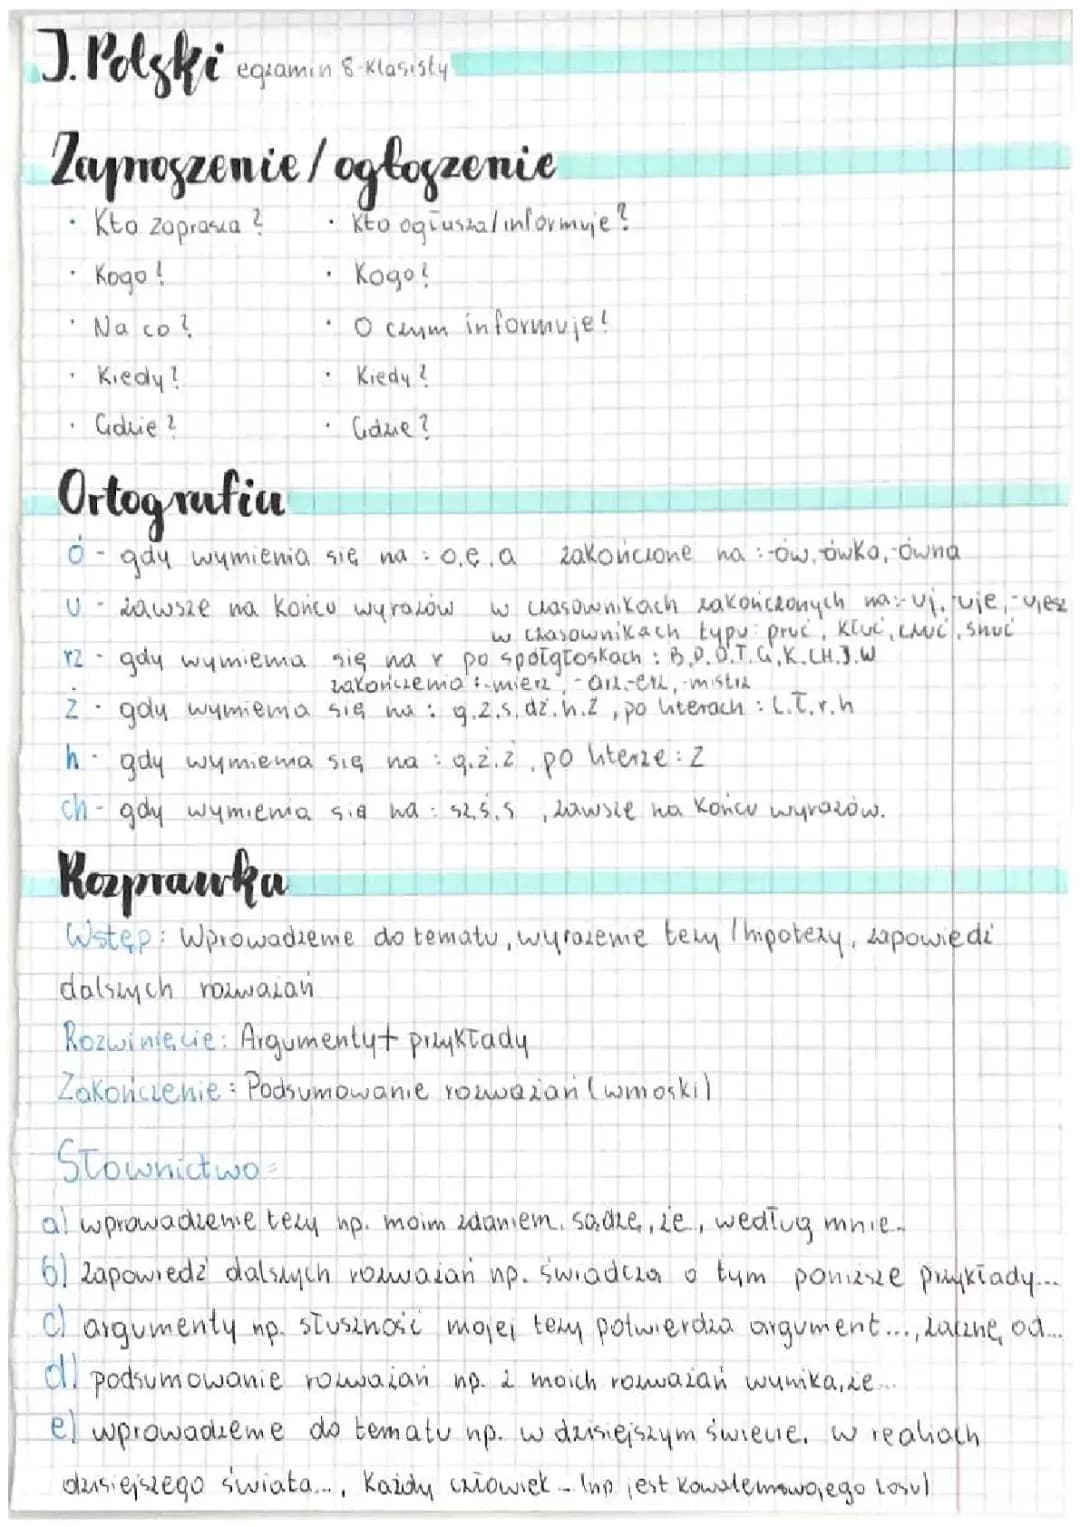 J. Polski egzamin 8-klasisty
Zaproszenie/ogłoszenie
· Kto zaprasza? · Kto ogłusza/informuje?
· Kogo? · Kogo?
· Na co? · O czym informuje?
· Kiedy? · Kiedy?
· Gdzie? · Gdzie?
Ortografia
ó - gdy wymienia się na : o,ę,a zakończone na :-ów,-ówka,-ówna
u - zawsze na końcu wyrazów w czasownikach zakończonych na:-uj,-uje,-ujesz
w czasownikach typu: pruć, kłuć, czuć, snuć
rz - gdy wymienia się na r po spółgłoskach : B,P,D,T,G,K,CH,J,W
zakończenia :-mierz,-arz,-erz,-mistrz
ż - gdy wymienia się na : g,z,s,dź,h,ź, po literach : l,ł,r,h
h - gdy wymienia się na : g,ż,ź, po literze : z
ch - gdy wymienia się na : sz,ś,s, zawsze na końcu wyrazów.
Rozprawka
Wstęp : Wprowadzenie do tematu, wyrażenie tezy / hipotezy, zapowiedź
dalszych rozważań
Rozwinięcie : Argumenty + przykłady
Zakończenie : Podsumowanie rozważań (wnioski)
Słownictwo :
a) wprowadzenie tezy np. moim zdaniem, sądzę, że, według mnie...
b) zapowiedź dalszych rozważań np. świadczą o tym poniższe przykłady...
c) argumenty np. słuszność mojej tezy potwierdza argument..., zacznę od...
d) podsumowanie rozważań np. z moich rozważań wynika, że...
e) wprowadzenie do tematu np. w dzisiejszym świecie, w realiach
dzisiejszego świata..., każdy człowiek... (np jest kowalem swojego losu)